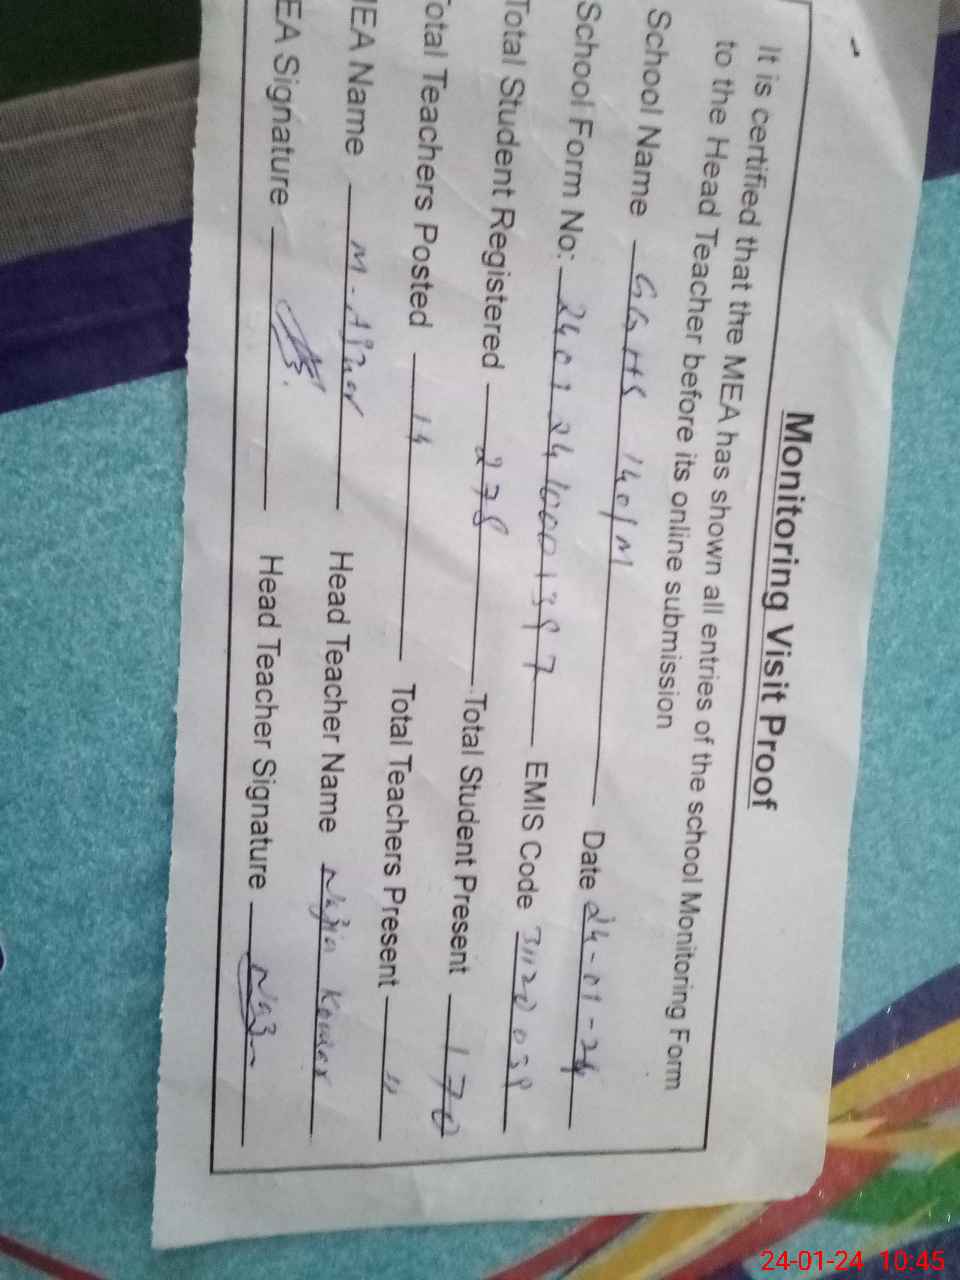 Monitoring Visit Proof
It is certified that the MEA has shown all entries of the school Monitoring Form
to the Head Teacher before its online submission
School Name GGHS 140/M Date 24-01-24
School Form No: 24012410001397 EMIS Code 31120039
Total Student Registered 278 Total Student Present 170
Total Teachers Posted 14 Total Teachers Present 11
MEA Name M- Head Teacher Name Najia Kousar
EA Signature Head Teacher Signature
24-01-24 10:45